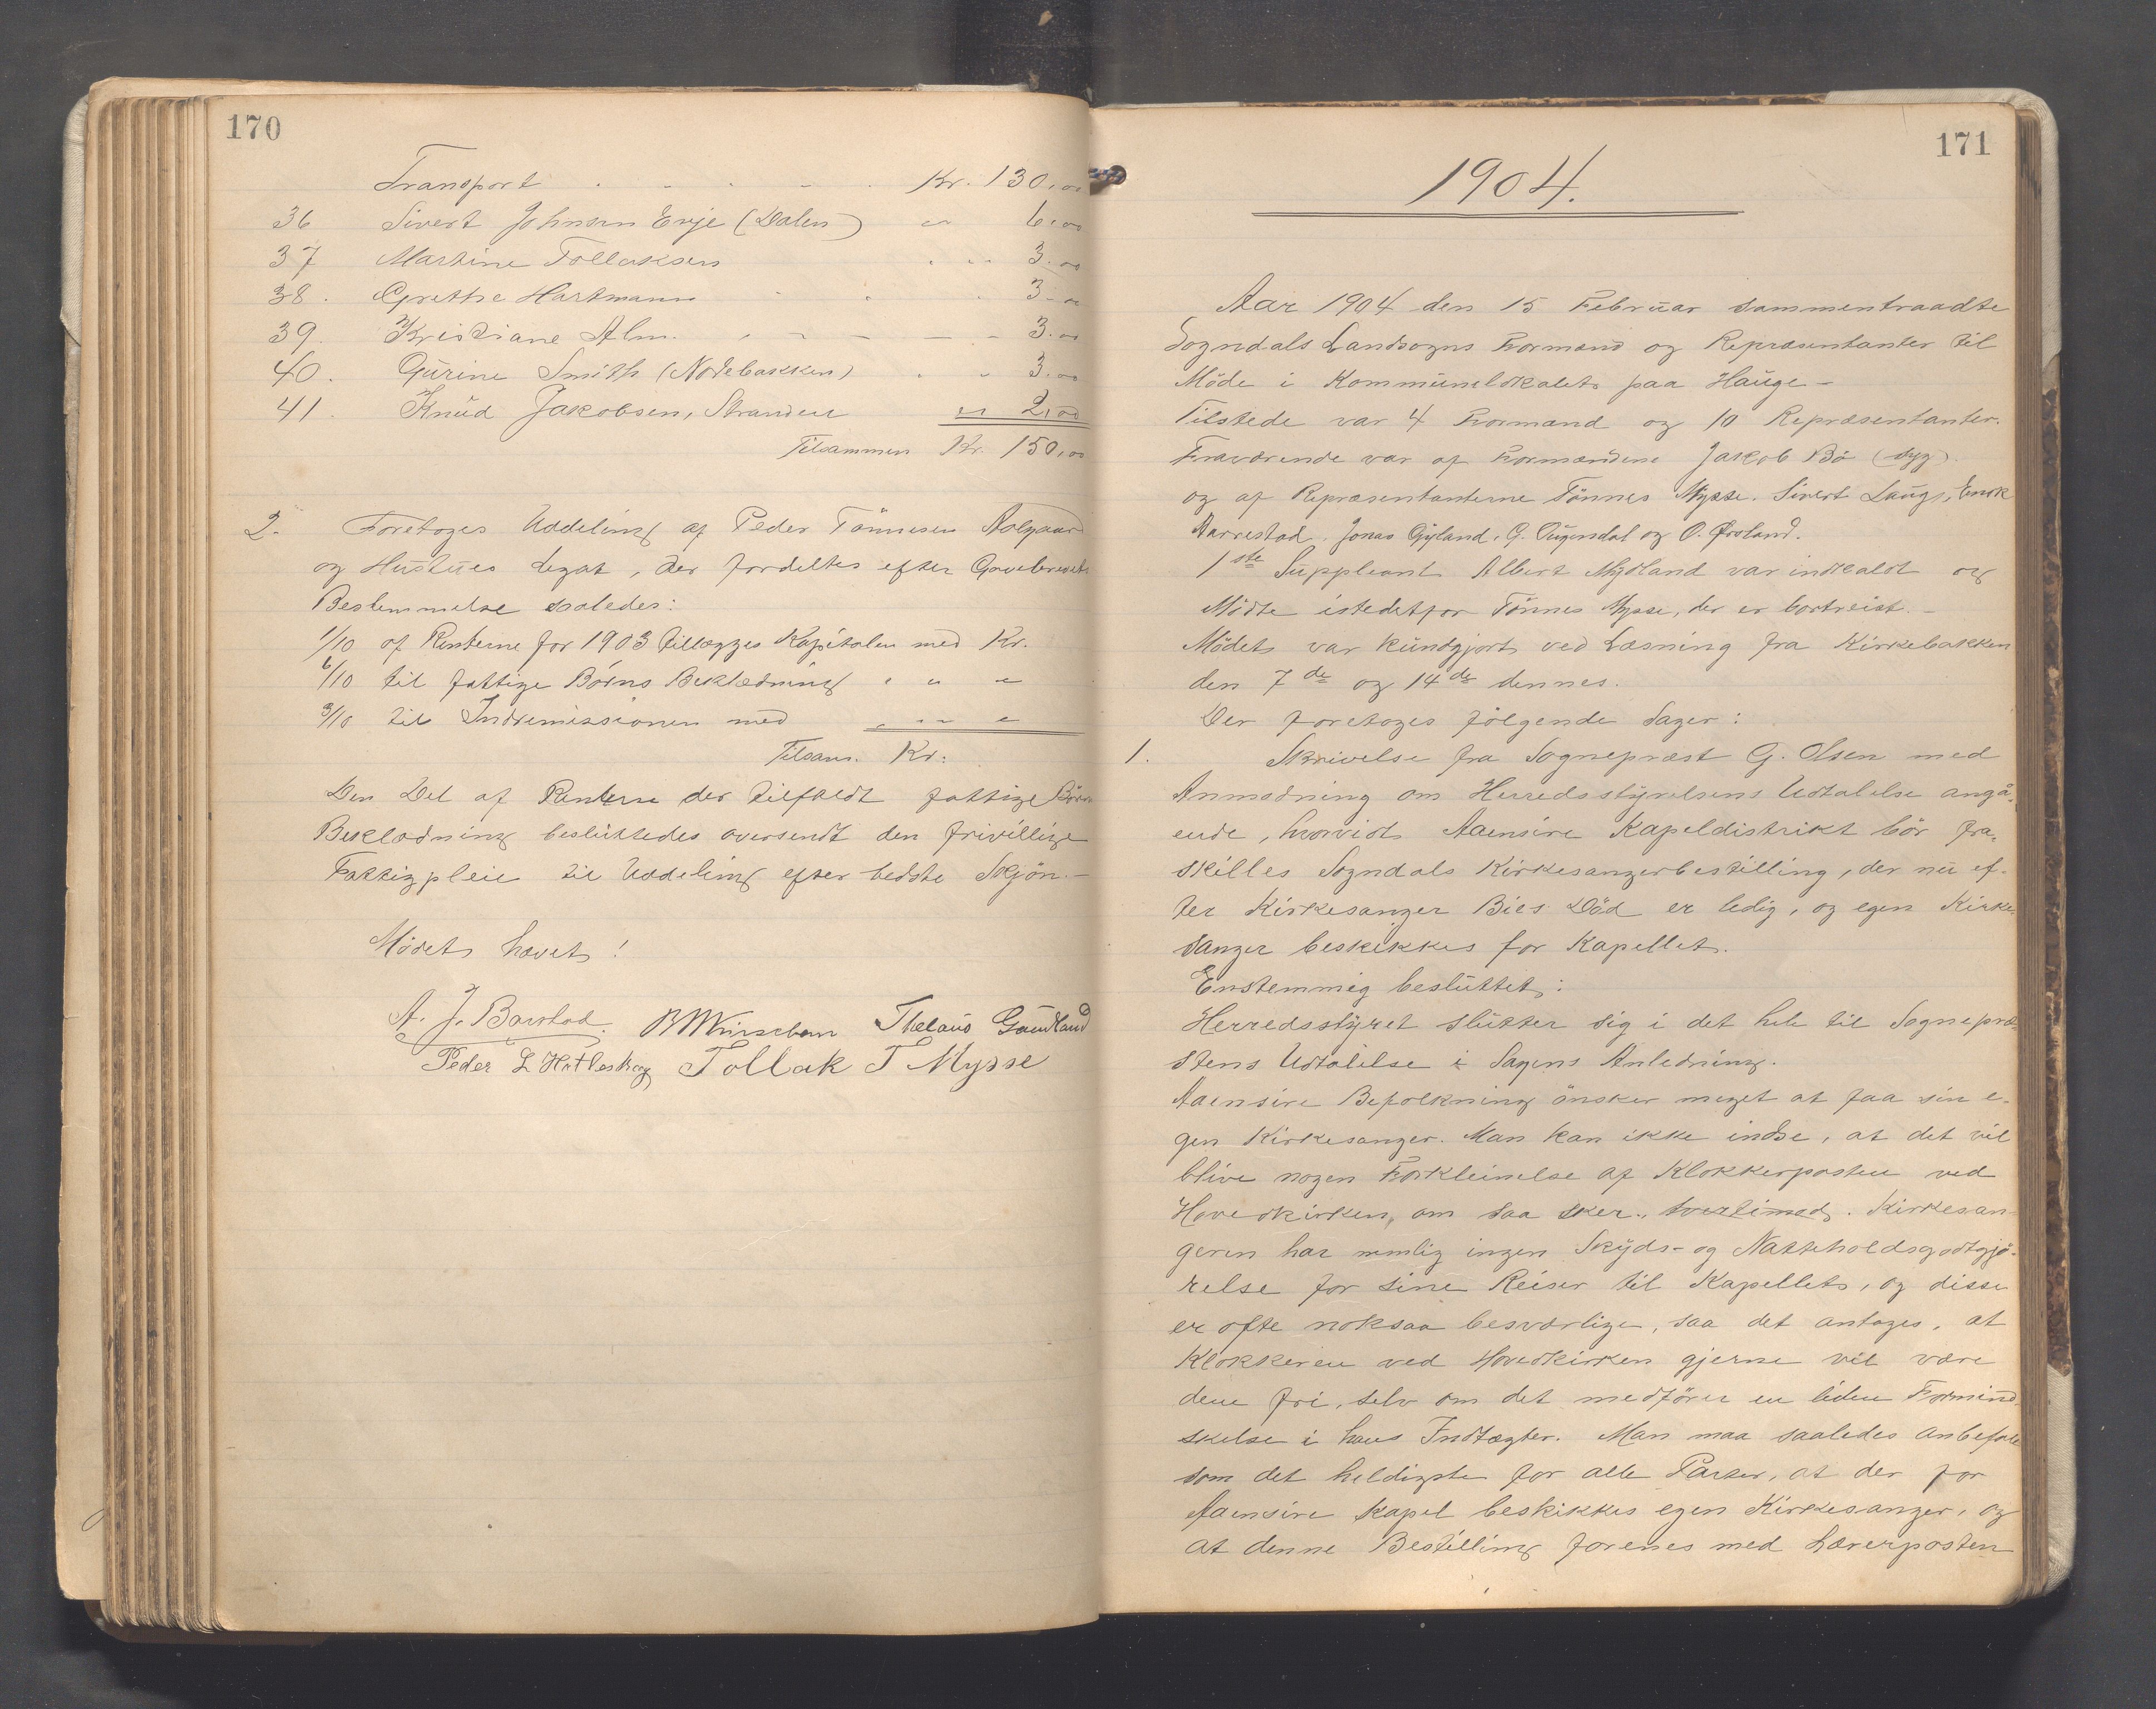 170
Transport . . . . . Kr. 130,00
36 Sivert Johnsen Evje (Dalen) " 6,00
37 Martine Tollaksen . " 3.00
38. Grethe Hartmann . . . 3-00
39. Kristiane Alm. . - - - - 3.00
40. Gurine Smith (Nodebakken) . " 3.00
41. Knud Jakobsen, Stranden " 2,00
Tilsammen Kr. 150,00
2. Foretoges Uddeling af Peder Tönnesen Aalgaard
og Hustrues Legat, der fordeltes efter Gavebrevets
Bestemmelse saaledes:
1/10 af Renterne for 1903 tillægges Kapitalen med Kr.
6/10 til fattige Börns Beklædning " " "
3/10 til Indremissionen med " " "
Tilsam. Kr.
Den Del af Renterne der tilfaldt fattige Börns
Beklædning besluttedes oversendt den frivillige
Fattigpleie til Uddeling efter bedste Skjön.-
Mödet hævet!
A. J. Barstad. Thelaus Gaudland
Peder L Hatleskog Tollak T Mysse
171
1904.
Aar 1904 den 15 Februar sammentraadte
Sogndals Landsogns Formænd og Repræsentanter til
Möde i Kommunelokalet paa Hauge-
Tilstede var 4 Formænd og 10 Repræsentanter.
Fraværende var af Formændene Jakob Bö (syg)
og af Repræsentanterne Tönnes Mysse. Sivert Laugs, Enok
Aarrestad, Jonas Gyland, G. Ougendal og O. Örsland.
1ste Suppleant Albert Mydland var indkaldt og
Mödte istedetfor Tönnes Mysse, der er bortreist.-
Mödet var kundgjort ved Læsning fra Kirkebakken
den 7de og 14de dennes.
Der foretoges fölgende Sager:
1. Skrivelse fra Sognepræst G. Olsen med
Anmodning om Herredsstyrelsens Udtalelse angå-
ende, hvorvidt Aaensire Kapeldistrikt bör fra-
skilles Sogndals Kirkesangerbestilling, der nu ef-
ter Kirkesanger Bies Död er ledig, og egen Kirke-
sanger beskikkes for Kapellet.
Enstemmig besluttet:
Herredsstyret slutter sig i det hele til Sognepræ-
stens Udtalelse i Sagens Anledning.
Aaensire Befolkning önsker meget at faa sin e-
gen Kirkesanger. Man kan ikke indse, at det vil
blive nogen Forkleinelse af Klokkerposten ved
Hovedkirken, om saa sker., tvertimod. Kirkesan-
geren har nemlig ingen Skyds- og Natteholdsgodtgjö-
relse for sine Reiser til Kapellet, og disse
er ofte noksaa besværlige, saa det antages, at
Klokkeren ved Hovedkirken gjerne vil være
dem fri, selv om det medförer en liden Formind-
skelse i hans Indtægter. Man maa saaledes anbefale
som det heldigste for alle Parter, at der for
Aaensire Kapel beskikkes egen Kirkesanger, og
at denne Bestilling forenes med Lærerposten